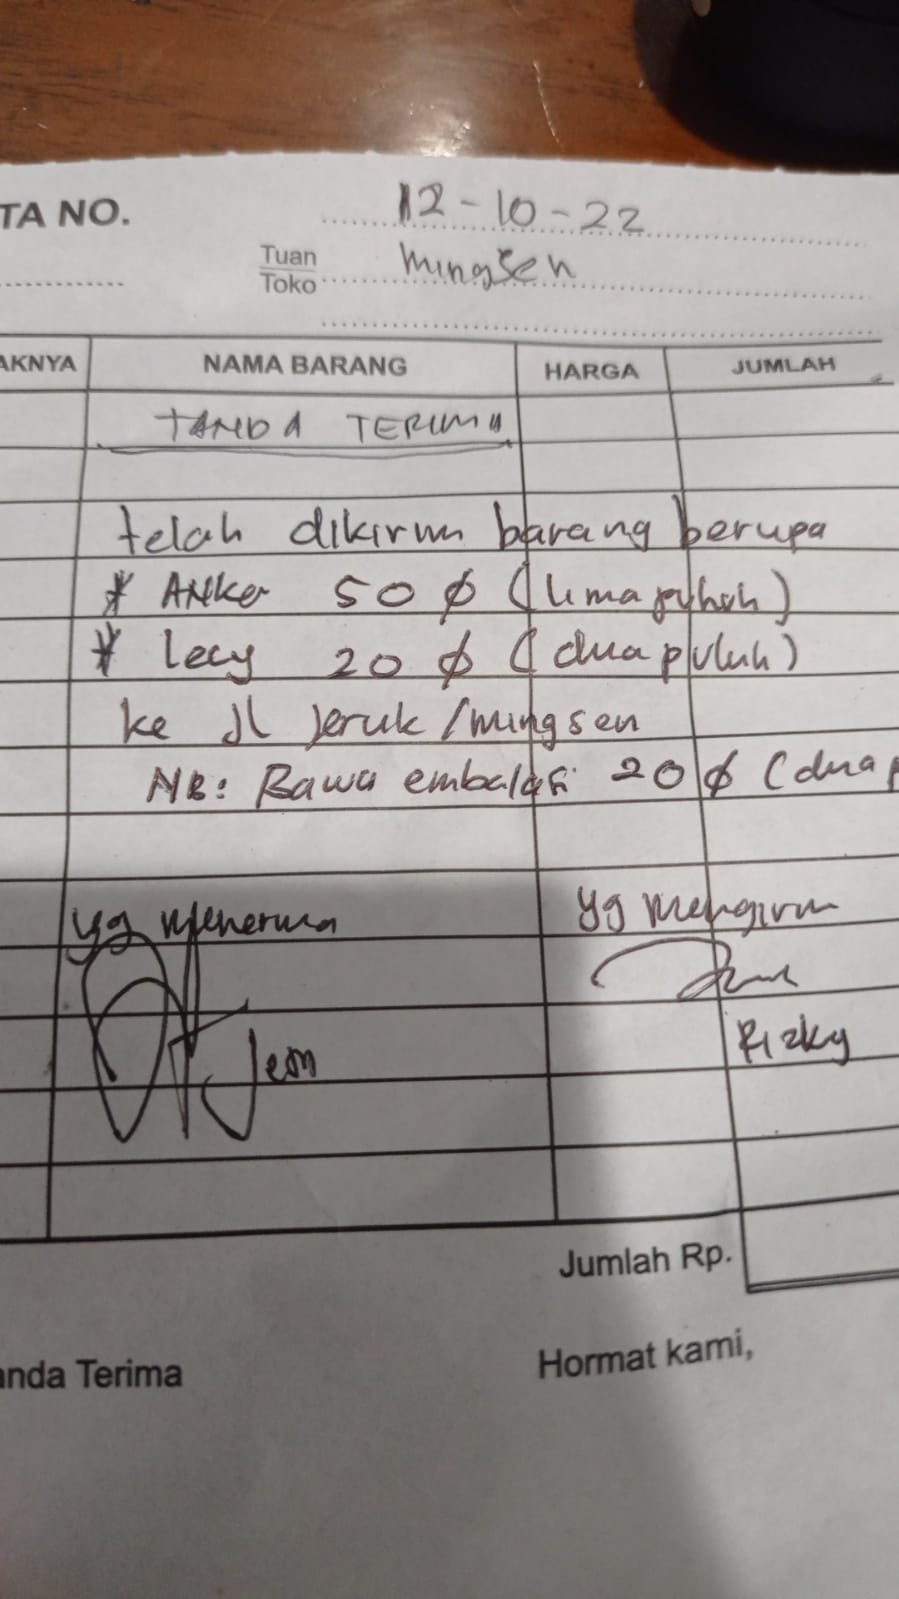 TA NO.
12-10-22
Tuan
Toko
Mingsen
AKNYA NAMA BARANG HARGA JUMLAH
TANDA TERIMA
telah dikirim barang berupa
* ANKer 50 ∅ (lima puluh)
* Lecy 20 ∅ (dua puluh)
ke Jl Jeruk/mingsen
NB: Bawa embalasi 20 ∅ (dua p
yg menerima yg mengirim
Jen
Rizky
Jumlah Rp.
anda Terima Hormat kami,